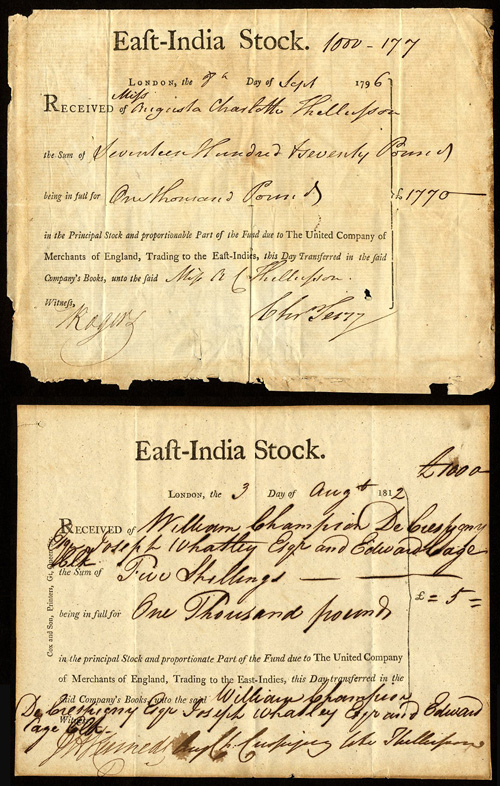 East-India Stock. 1000 - 177
London, the 7th Day of Sept 1796
Miss
Received of Augusta Charlotte Thellusson
the Sum of Seventeen Hundred & seventy Pounds
being in full for One thousand Pounds £ 1770
in the Principal Stock and proportionable Part of the Fund due to The United Company of
Merchants of England, Trading to the East-Indies, this Day Transferred in the said
Company's Books, unto the said Miss A C Thellusson.
Witness,
Rogers
East-India Stock.
£1000
London, the 3 Day of Augt 1812
Received of William Champion De Crespigny
Joseph Whatley Esqr and Edward Page
Clk
the Sum of Five Shillings
being in full for One Thousand pounds £ = 5 =
in the principal Stock and proportionate Part of the Fund due to The United Company
of Merchants of England, Trading to the East-Indies, this Day transferred in the
said Company's Books, unto the said William Champion
De Crespigny Esqr Joseph Whatley Esqr and Edward
Witness
Page Clk
late Thellusson
Cox and Son, Printers, Gt. Queen